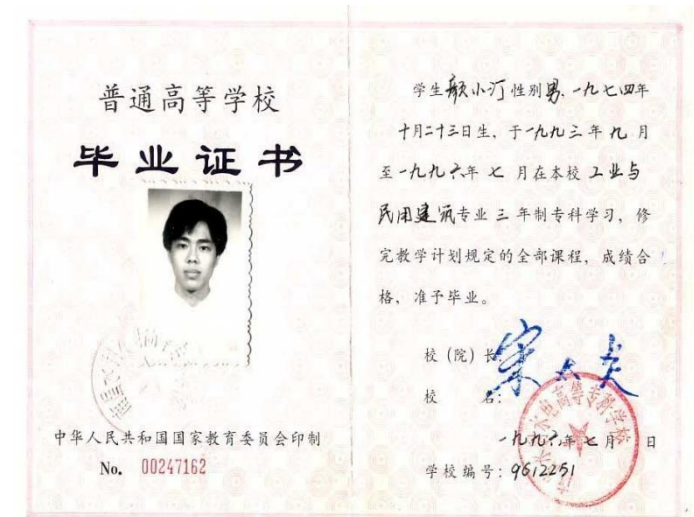 普通高等学校
毕业证书
中华人民共和国国家教育委员会印制
No. 00247162
学生颜小汀性别男,一九七四年
十月二十三日生、于一九九三年九月
至一九九六年七月在本校工业与
民用建筑专业三年制专科学习,修
完教学计划规定的全部课程,成绩合
格,准予毕业。
校(院)长:
校名:
水电高等专科学校
一九九六年七月 日
学校编号:9612251